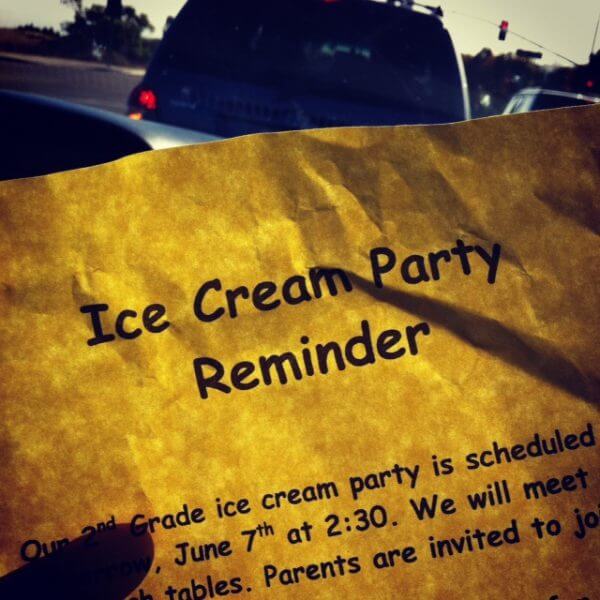 Ice Cream Party
Reminder
Our 2nd Grade ice cream party is scheduled
June 7th at 2:30. We will meet
tables. Parents are invited to